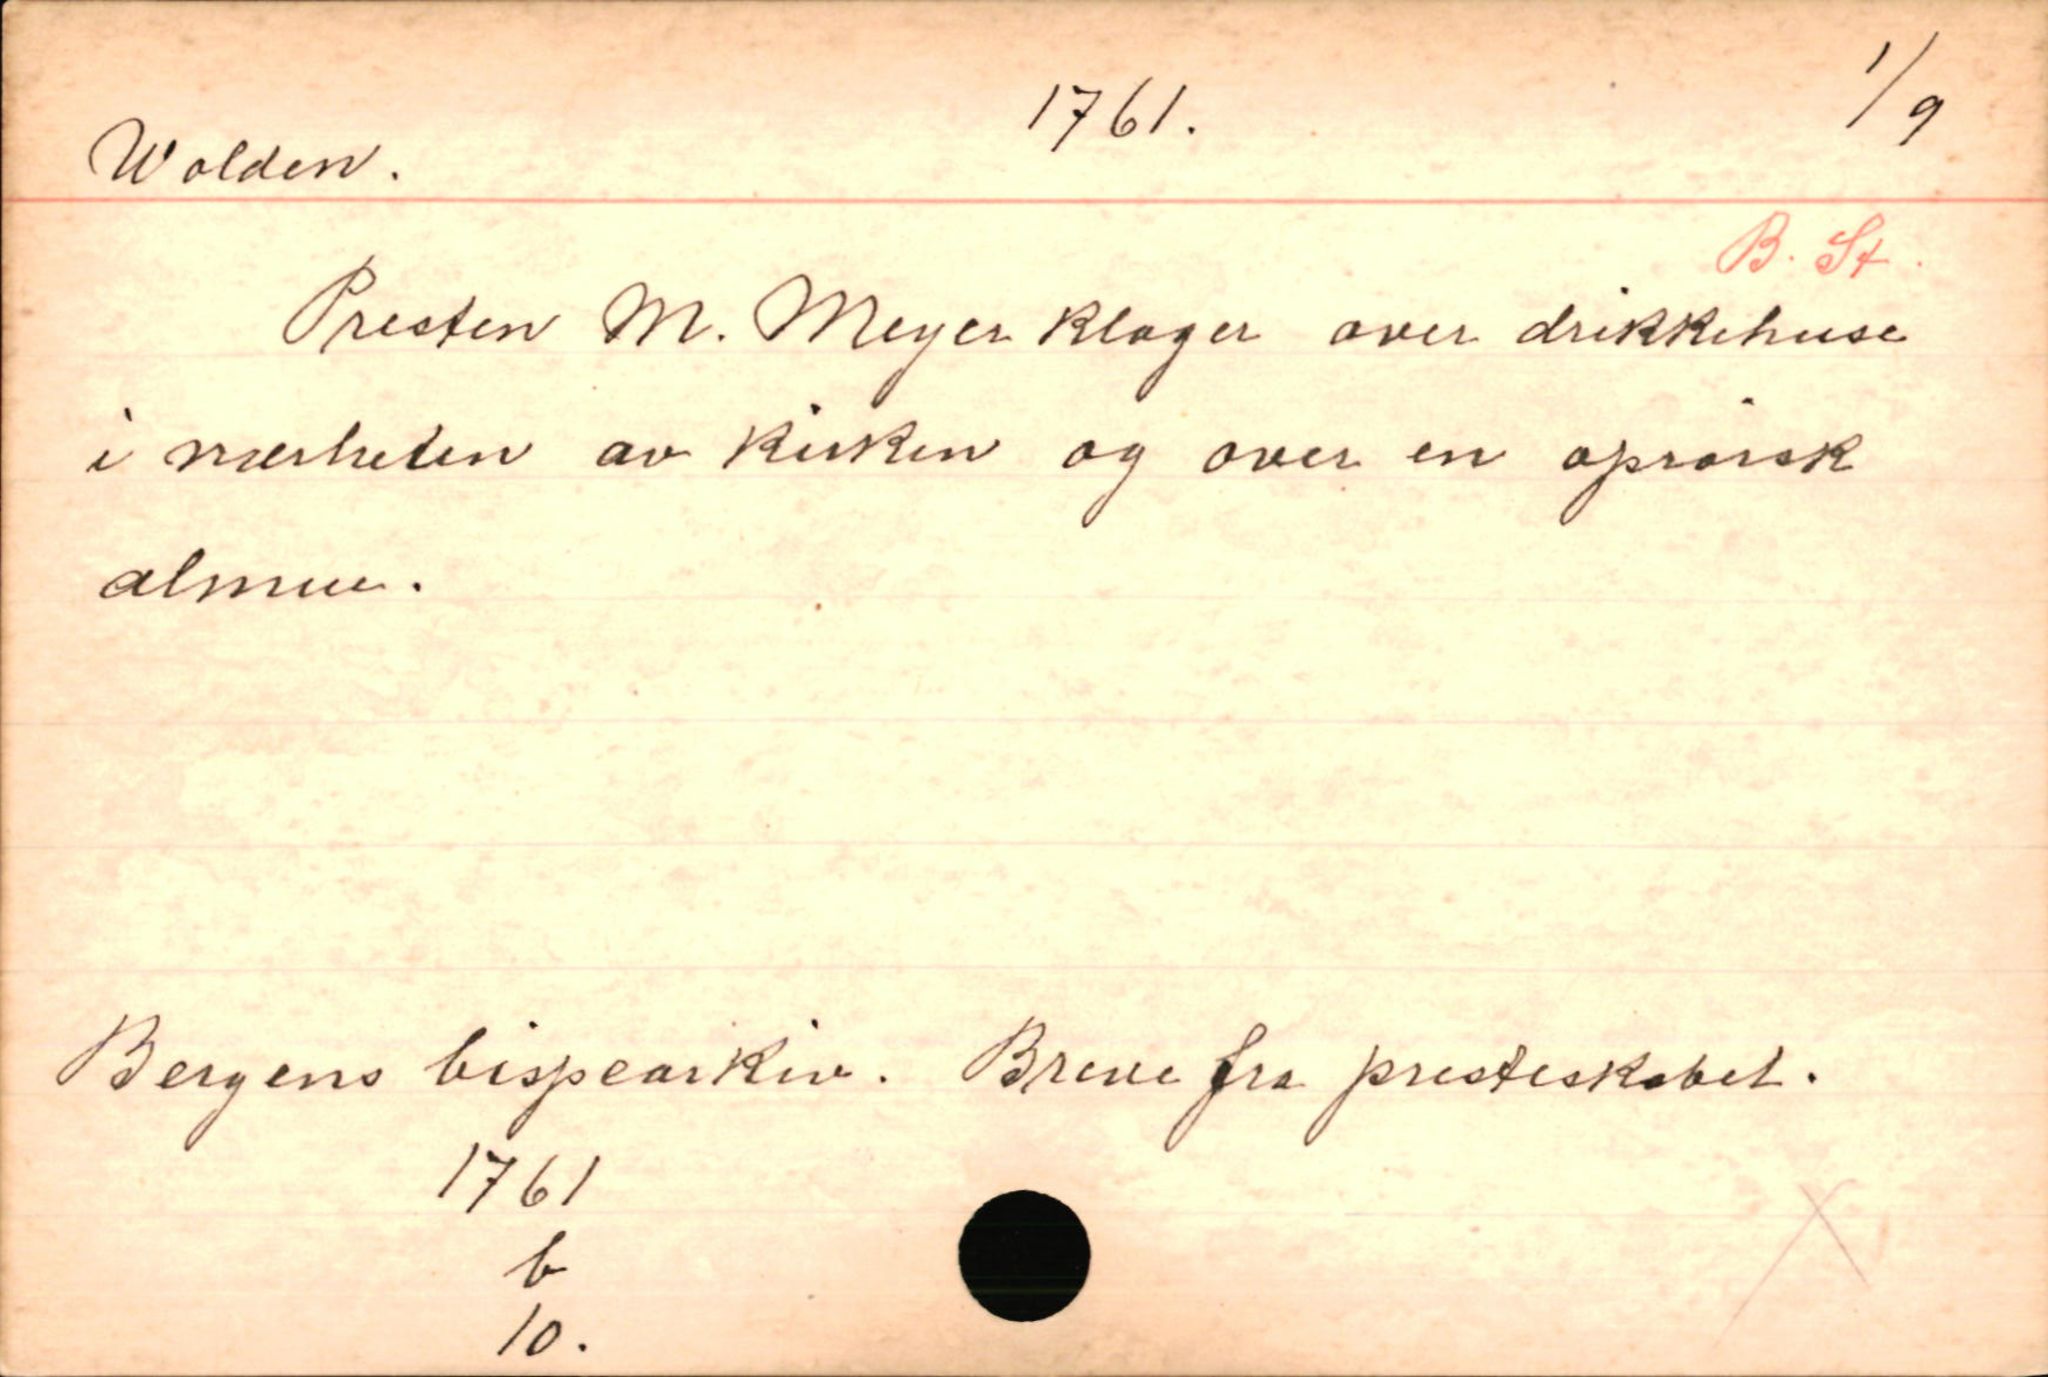 1761. 1/9
Wolden.
B. St.
Presten M. Meyer klager over drikkehuse
i nærheten av kirken og over en oprørsk
almue.
Bergens bispearkiv. Breve fra presteskabet.
1761
b
10.
X